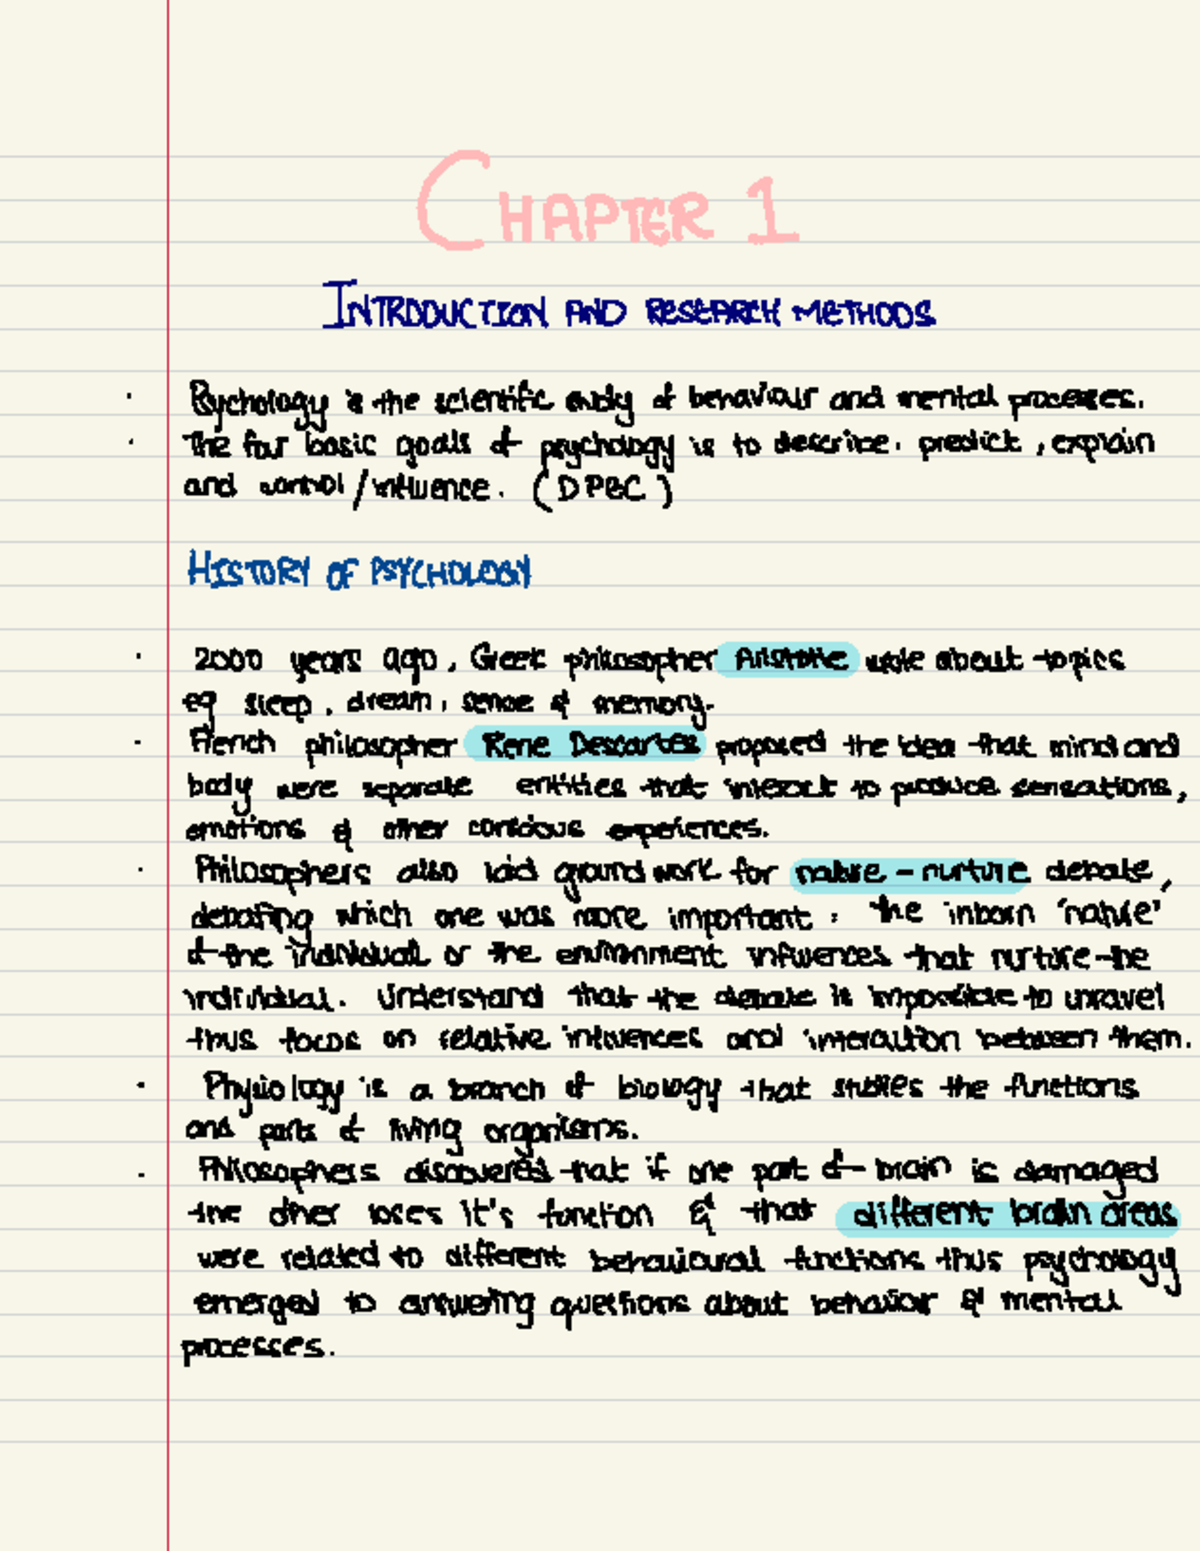 CHAPTER 1
INTRODUCTION AND RESEARCH METHODS
Psychology is the scientific study of behaviour and mental processes.
The four basic goals of psychology is to describe, predict, explain
and control/influence. (DPEC)
HISTORY OF PSYCHOLOGY
2000 years ago, Greek philosopher Aristotle wrote about topics
eg sleep, dream, sense & memory.
French philosopher Rene Descartes proposed the idea that mind and
body were separate entities that interact to produce sensations,
emotions & other conscious experiences.
Philosophers also laid ground work for nature - nurture debate,
debating which one was more important: the inborn 'nature'
of the individual or the environment influences that nurture the
individual. Understand that the debate is impossible to unravel
thus focus on relative influences and interaction between them.
Physiology is a branch of biology that studies the functions
and parts of living organisms.
Philosophers discovered that if one part of brain is damaged
the other loses it's function & that different brain areas
were related to different behavioural functions thus psychology
emerged to answering questions about behavior & mental
processes.